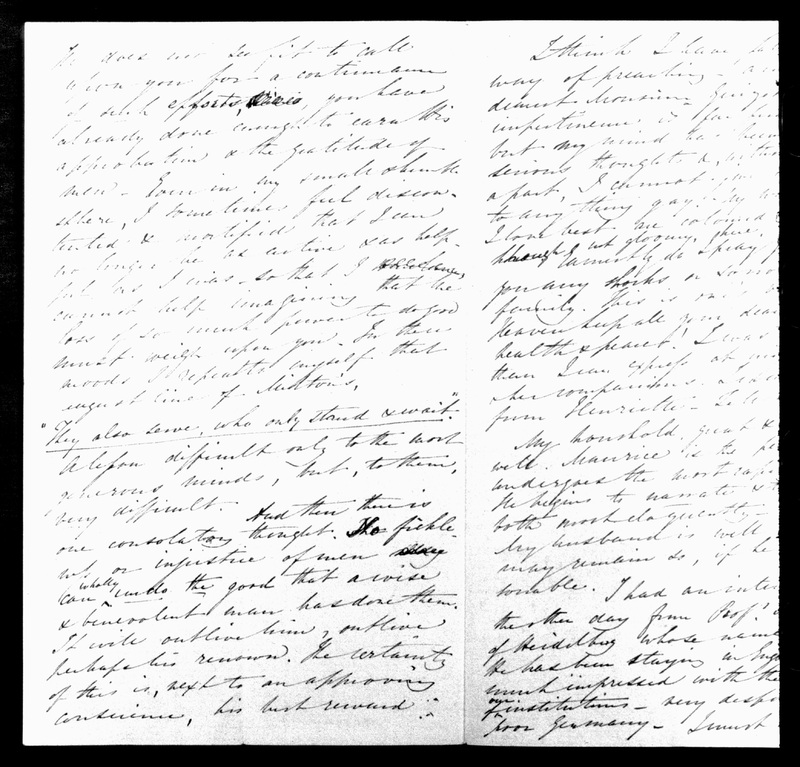 He does not see fit to call
upon you for a continuance
of such efforts, you have
already done enough to earn His
approbation & the gratitude of
men - Even in my small humble
sphere, I sometimes feel discon-
tented & mortified that I can
no longer be as active & as help-
ful as I was - so that I
cannot help imagining that the
loss of so much power to do good
must weigh upon you - In these
moods I repeat to myself that
august line of Milton's,
"They also serve, who only stand & wait."
A lesson difficult only to the most
generous minds, but, to them,
very difficult. And then there is
one consolatory thought. No fickle-
ness or injustice of men
can wholly undo the good that a wise
& benevolent man has done them.
It will outlive him, outlive
perhaps his renown. The certainty
of this is, next to an approving
conscience, his best reward
I think I have
way of preaching -
dearest Monsieur
impertinence is far
but my mind has been
serious thoughts &
apart, I cannot
to any thing gay.
I love best are coloured
though not gloomy,
Earnestly do I pray
you any shocks or
family. This is only
Heaven keep all your dear
health & peace! I was
than I can express at
her companions
from Henriette -
My household, great &
well. Maurice is the
undergoes the most rapid
He begins to narrate &
both most eloquently -
My husband is well
may remain so, if he
sonable. I had an inter
the other day from Prof.
of Heidelberg whose name
He has been staying in Eng
much impressed with the
our institutions - very desp
poor Germany - I must